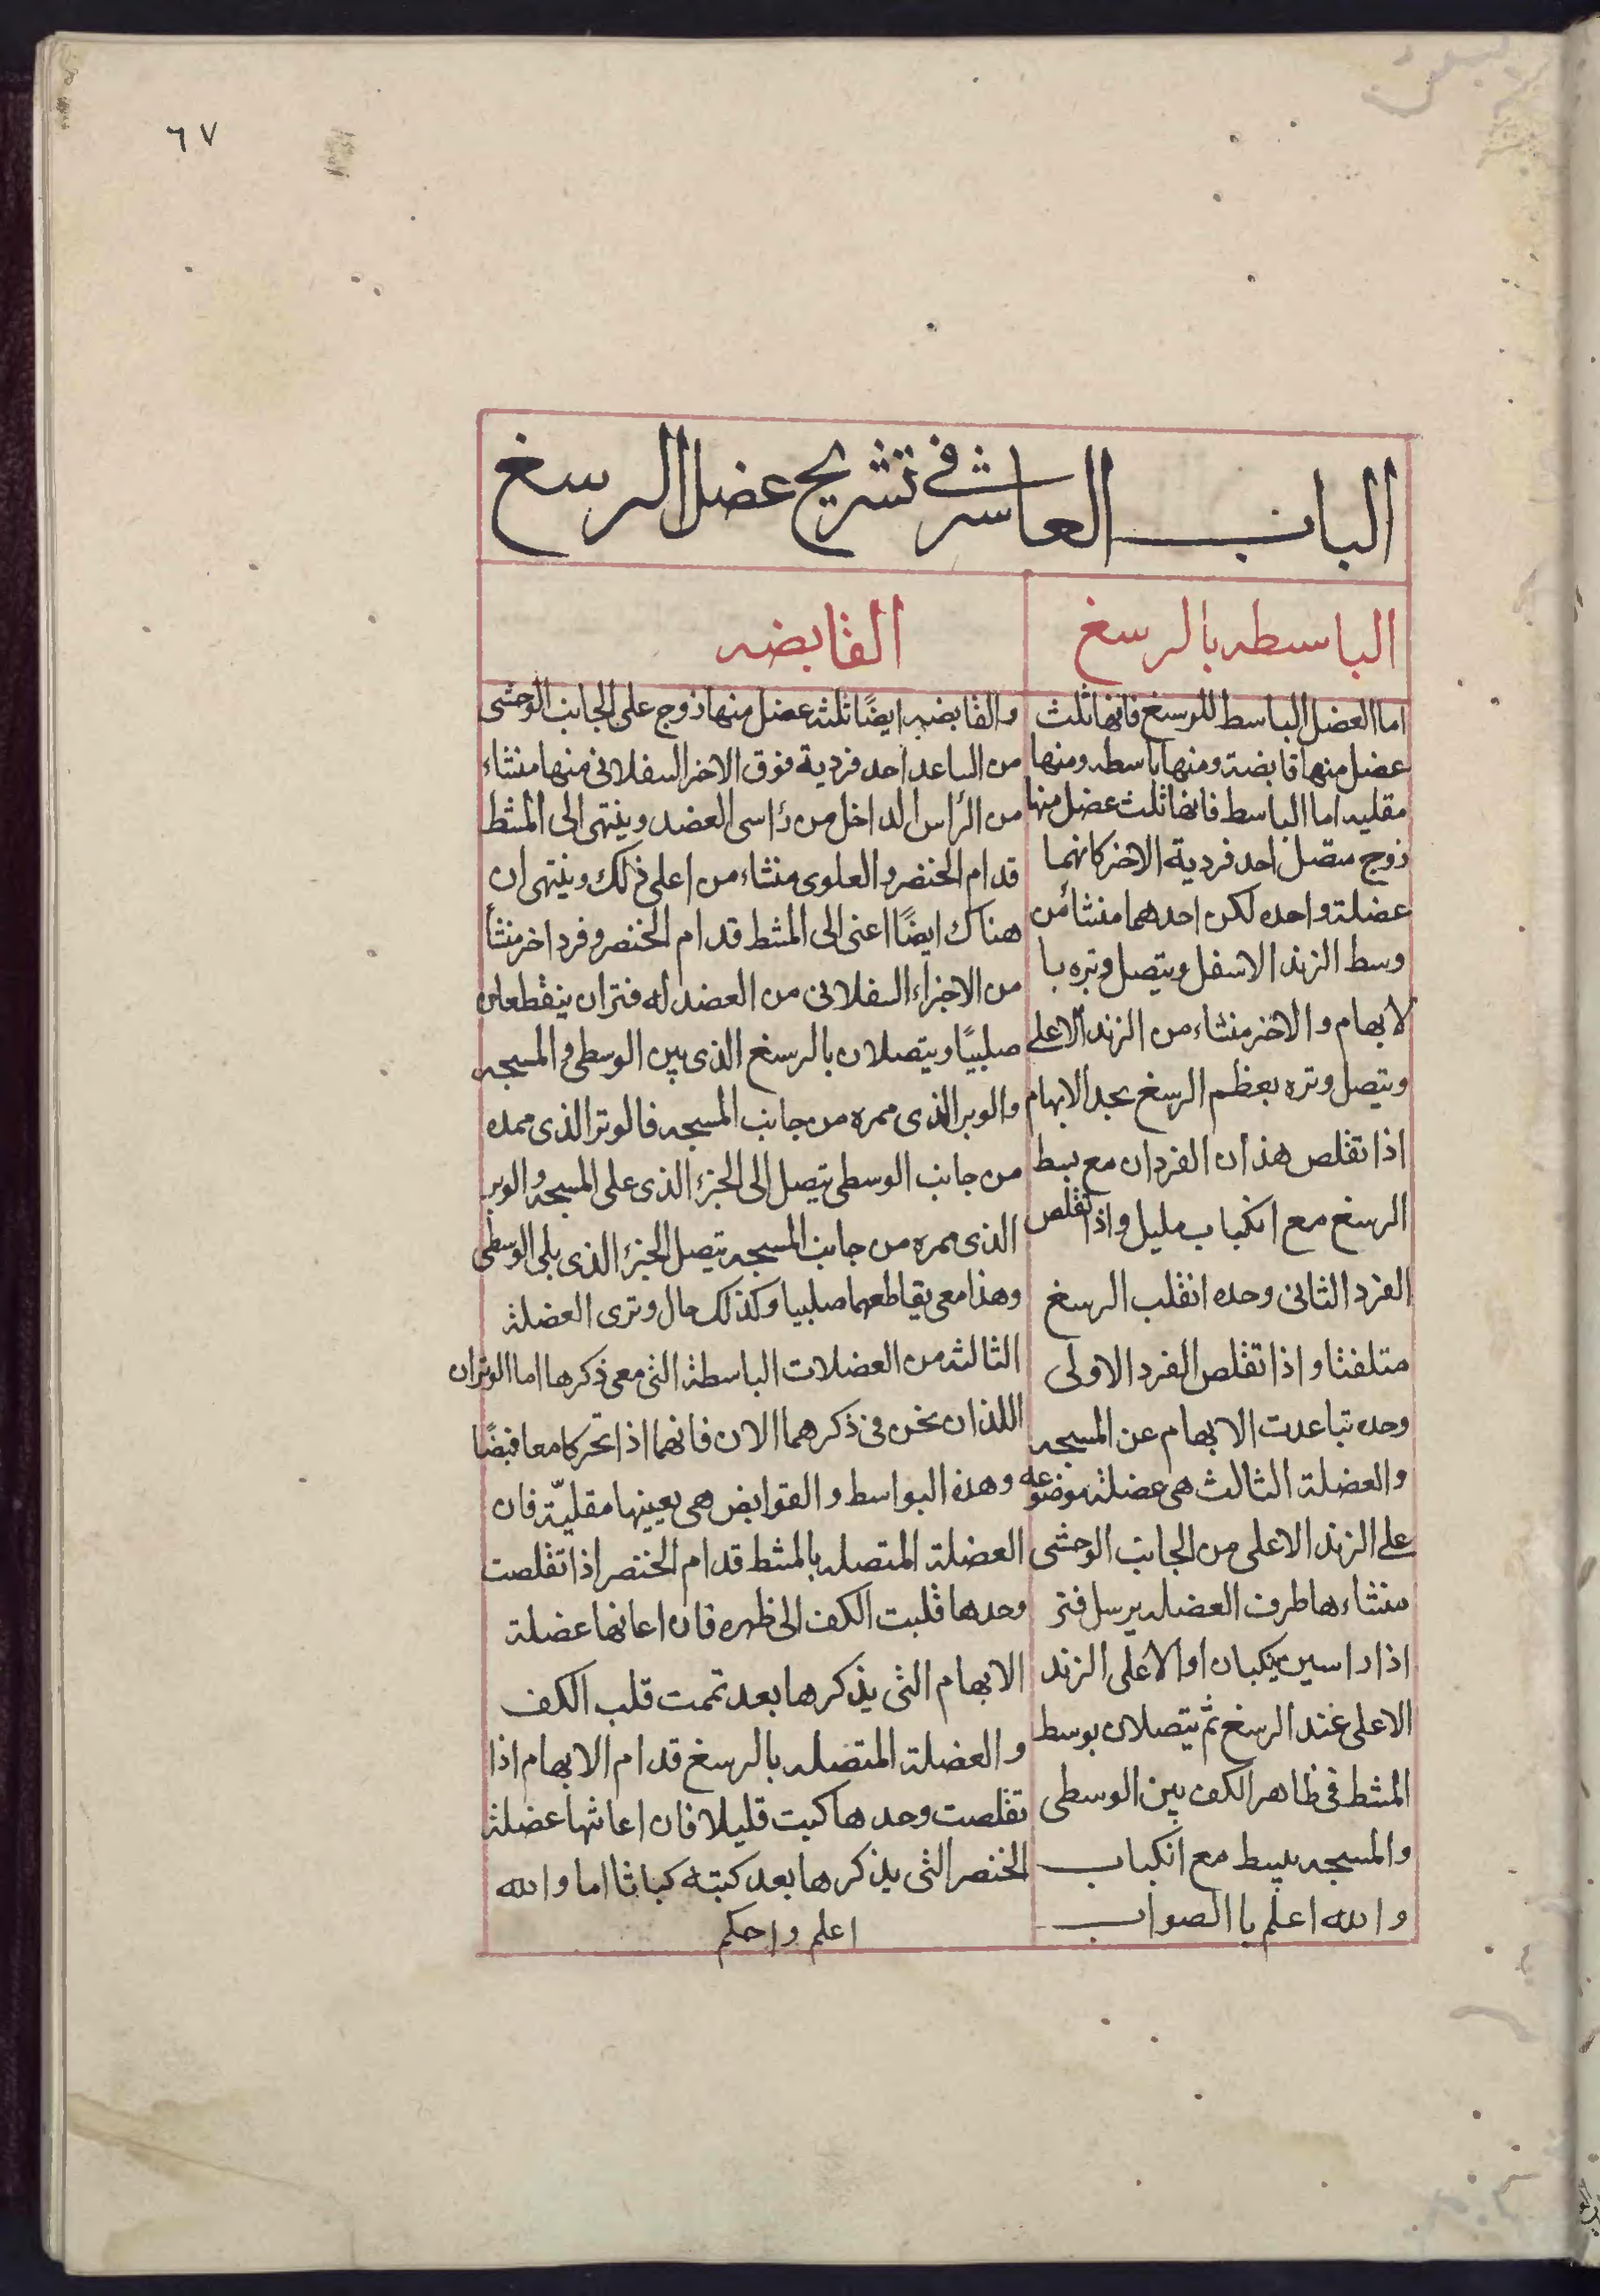 ٦٧
الباب العاشر في تشريح عضل الرسغ
الباسطه بالرسغ
اما العضل الباسط للرسغ فانها ثلث
عضل منها قابضة ومنها باسطه ومنها
مقلبه اما الباسط فانها ثلث عضل منها
زوج متصل احد فردية الاخر كانهما
عضلة واحده لكن احدهما منشائن
وسط الزند الاسفل ويتصل وتره با
لابهام والاخر منشاء من الزند الاعلى
ويتصل وتره بعظم الرسغ بحد الابهام
اذا تقلص هذان الفردان مع بسط
الرسغ مع انكباب مليل واذا تقلص
الفرد الثانى وحده انقلب الرسغ
متلفتا واذا تقلص الفرد الاولى
وحده تباعدت الابهام عن المسبحه
والعضلة الثالث هى عضلة موضوعه
على الزند الاعلى من الجانب الوحشى
منشاءها طرف العضله يرسل فتر
اذا راسين يكبان او الاعلى الزند
الاعلى عند الرسغ ثم يتصلان بوسط
المشط فى ظاهر الكف بين الوسطى
والمسبحه يبسط مع انكباب
والله اعلم باالصواب
القابضه
والقابضه ايضًا ثلثه عضل منها زوج على الجانب الوحشى
من الساعد احد فردية فوق الاخر السفلانى منها منشاء
من الرأس الداخل من رأسى العضد وينتهى الى المشط
قدام الخنصر والعلوى منشاء من اعلى ذلك وينتهى ان
هناك ايضًا اعنى الى المشط قدام الخنصر وفرد اخر منشأ
من الاجزاء السفلانى من العضد له فتران ينقطعان
صلبيًا ويتصلان بالرسغ الذى بين الوسطى والمسبحه
والوبر الذى ممره من جانب المسبحه فالوتر الذى ممده
من جانب الوسطى يتصل الى الجزء الذى على المسبحه والوبر
الذى ممره من جانب المسبحه يتصل الجزء الذى يلى الوسطى
وهذا معى يقاطعهما صلبيا وكذلك مال وترى العضلة
الثالثه من العضلات الباسطة التى معى ذكرها اما الوتران
اللذان نحن فى ذكرهما الان فانهما اذا تحركا معا قبضًا
وهذه البواسط والقوابض هى بعينها مقلبّة فان
العضلة المتصله بالمشط قدام الخنصر اذا تقلصت
وحدها قلبت الكف الى ظهره فان اعانها عضلة
الابهام التى يذكرها بعد تممت قلب الكف
والعضلة المتصله بالرسغ قدام الابهام اذا
تقلصت وحدها كبت قليلا فان اعانتها عضلة
الخنصر التى يذكرها بعد كبته كباتا اما والله
اعلم واحكم